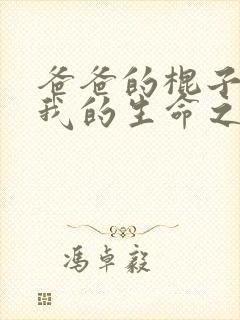 爸爸的棍子
我的生命之
冯卓毅